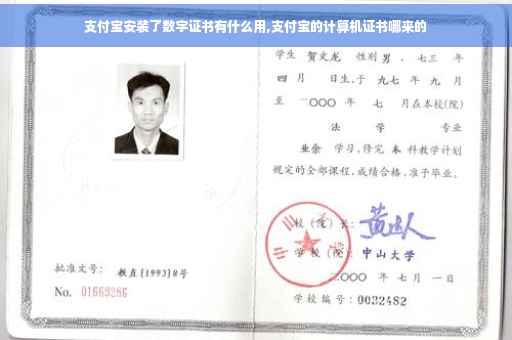 支付宝安装了数字证书有什么用,支付宝的计算机证书哪来的
学生 贺文龙 性别男、七三 年
四 月 日生,于 九七 年 九 月
至 二〇〇〇 年 七 月在本校(院)
法 学 专业
业余 学习,修完 本 科教学计划
规定的全部课程,成绩合格,准予毕业。
校(院)长:
学校(院): 中山大学
二〇〇〇 年 七 月 一日
学校编号:0032482
批准文号: 教直[1993]8号
No. 01669286